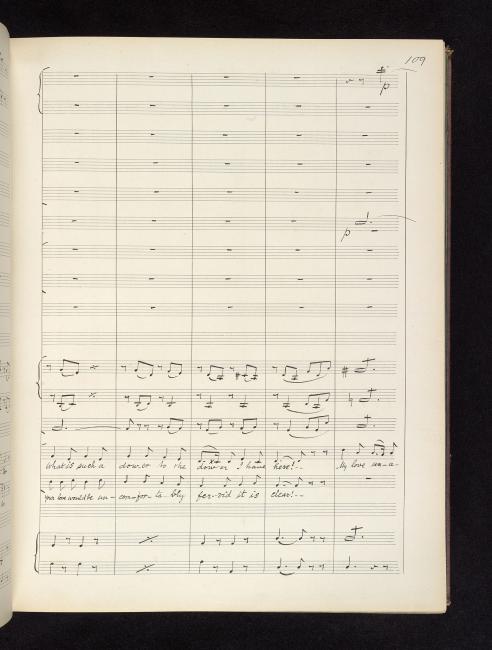 109
p
p
What is such a dow-er to the dow-er I have here!-- My love un-a-
Your love would be un-com-for-ta-bly fer-vid it is clear!--